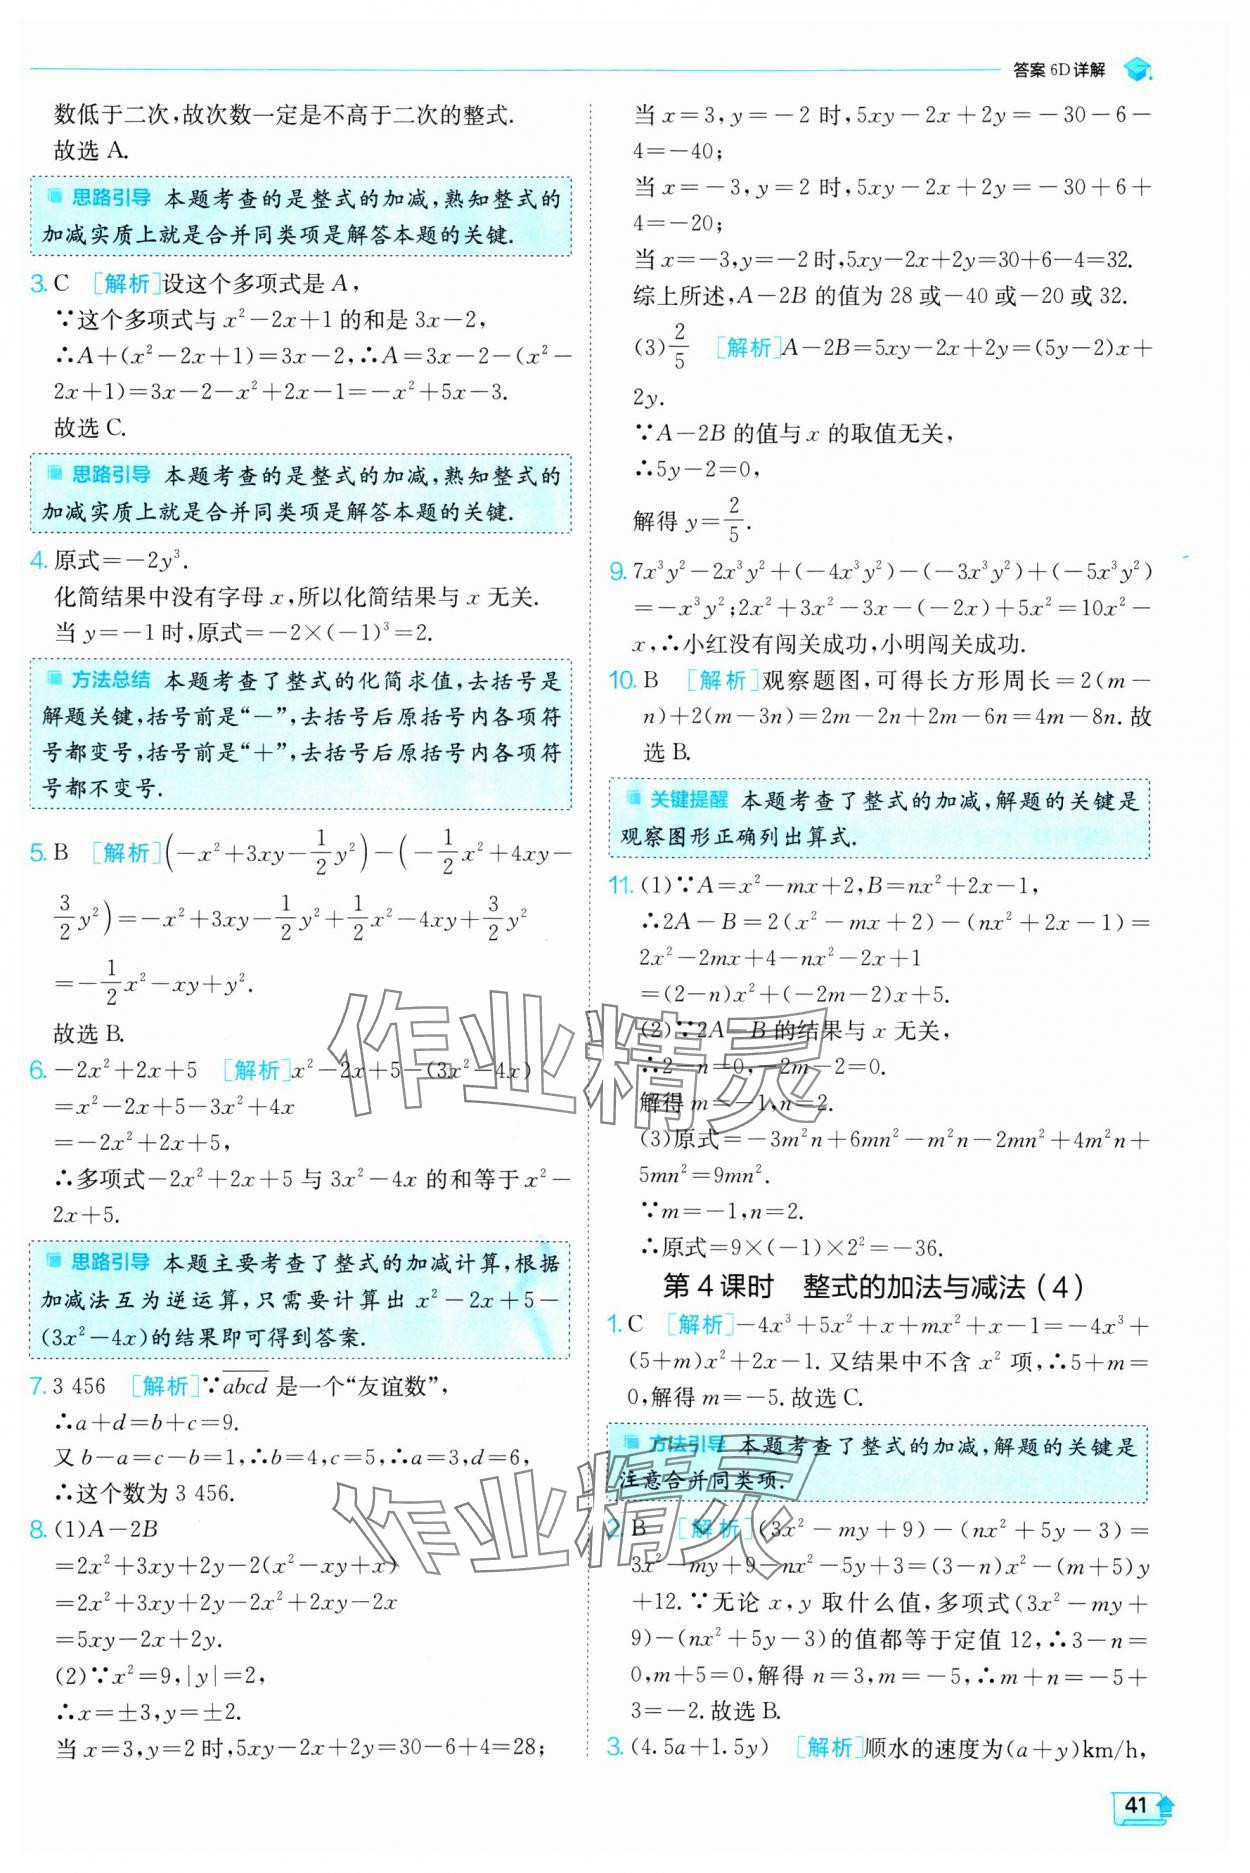 答案 6D详解
数低于二次,故次数一定是不高于二次的整式.
故选 A.
思路引导 本题考查的是整式的加减,熟知整式的
加减实质上就是合并同类项是解答本题的关键.
3. C [解析]设这个多项式是 A,
∵这个多项式与 x²-2x+1 的和是 3x-2,
∴A+(x²-2x+1)=3x-2,∴A=3x-2-(x²-
2x+1)=3x-2-x²+2x-1=-x²+5x-3.
故选 C.
思路引导 本题考查的是整式的加减,熟知整式的
加减实质上就是合并同类项是解答本题的关键.
4. 原式=-2y³.
化简结果中没有字母 x,所以化简结果与 x 无关.
当 y=-1 时,原式=-2×(-1)³=2.
方法总结 本题考查了整式的化简求值,去括号是
解题关键,括号前是“-”,去括号后原括号内各项符
号都变号,括号前是“+”,去括号后原括号内各项符
号都不变号.
5. B [解析](-x²+3xy-1/2y²)-(-1/2x²+4xy-
3/2y²)=-x²+3xy-1/2y²+1/2x²-4xy+3/2y²
=-1/2x²-xy+y².
故选 B.
6. -2x²+2x+5 [解析]x²-2x+5-(3x²-4x)
=x²-2x+5-3x²+4x
=-2x²+2x+5,
∴多项式-2x²+2x+5 与 3x²-4x 的和等于 x²-
2x+5.
思路引导 本题主要考查了整式的加减计算,根据
加减法互为逆运算,只需要计算出 x²-2x+5-
(3x²-4x)的结果即可得到答案.
7. 3 456 [解析]∵a̅b̅c̅d̅ 是一个“友谊数”,
∴a+d=b+c=9.
又 b-a=c-b=1,∴b=4,c=5,∴a=3,d=6,
∴这个数为 3 456.
8. (1)A-2B
=2x²+3xy+2y-2(x²-xy+x)
=2x²+3xy+2y-2x²+2xy-2x
=5xy-2x+2y.
(2)∵x²=9,|y|=2,
∴x=±3,y=±2.
当 x=3,y=2 时,5xy-2x+2y=30-6+4=28;
当 x=3,y=-2 时,5xy-2x+2y=-30-6-
4=-40;
当 x=-3,y=2 时,5xy-2x+2y=-30+6+
4=-20;
当 x=-3,y=-2 时,5xy-2x+2y=30+6-4=32.
综上所述,A-2B 的值为 28 或-40 或-20 或 32.
(3)2/5 [解析]A-2B=5xy-2x+2y=(5y-2)x+
2y.
∵A-2B 的值与 x 的取值无关,
∴5y-2=0,
解得 y=2/5.
9. 7x³y²-2x³y²+(-4x³y²)-(-3x³y²)+(-5x³y²)
=-x³y²;2x²+3x²-3x-(-2x)+5x²=10x²-
x,∴小红没有闯关成功,小明闯关成功.
10. B [解析]观察题图,可得长方形周长=2(m-
n)+2(m-3n)=2m-2n+2m-6n=4m-8n.故
选 B.
关键提醒 本题考查了整式的加减,解题的关键是
观察图形正确列出算式.
11. (1)∵A=x²-mx+2,B=nx²+2x-1,
∴2A-B=2(x²-mx+2)-(nx²+2x-1)=
2x²-2mx+4-nx²-2x+1
=(2-n)x²+(-2m-2)x+5.
(2)∵2A-B 的结果与 x 无关,
∴2-n=0,-2m-2=0,
解得 m=-1,n=2.
(3)原式=-3m²n+6mn²-m²n-2mn²+4m²n+
5mn²=9mn².
∵m=-1,n=2.
∴原式=9×(-1)×2²=-36.
第 4 课时 整式的加法与减法(4)
1. C [解析]-4x³+5x²+x+mx²+x-1=-4x³+
(5+m)x²+2x-1.又结果中不含 x² 项,∴5+m=
0,解得 m=-5.故选 C.
方法引导 本题考查了整式的加减,解题的关键是
注意合并同类项.
2. B [解析](3x²-my+9)-(nx²+5y-3)=
3x²-my+9-nx²-5y+3=(3-n)x²-(m+5)y
+12.∵无论 x,y 取什么值,多项式(3x²-my+
9)-(nx²+5y-3)的值都等于定值 12,∴3-n=
0,m+5=0,解得 n=3,m=-5,∴m+n=-5+
3=-2.故选 B.
3. (4.5a+1.5y) [解析]顺水的速度为(a+y)km/h,
41
作业精灵
作业精灵